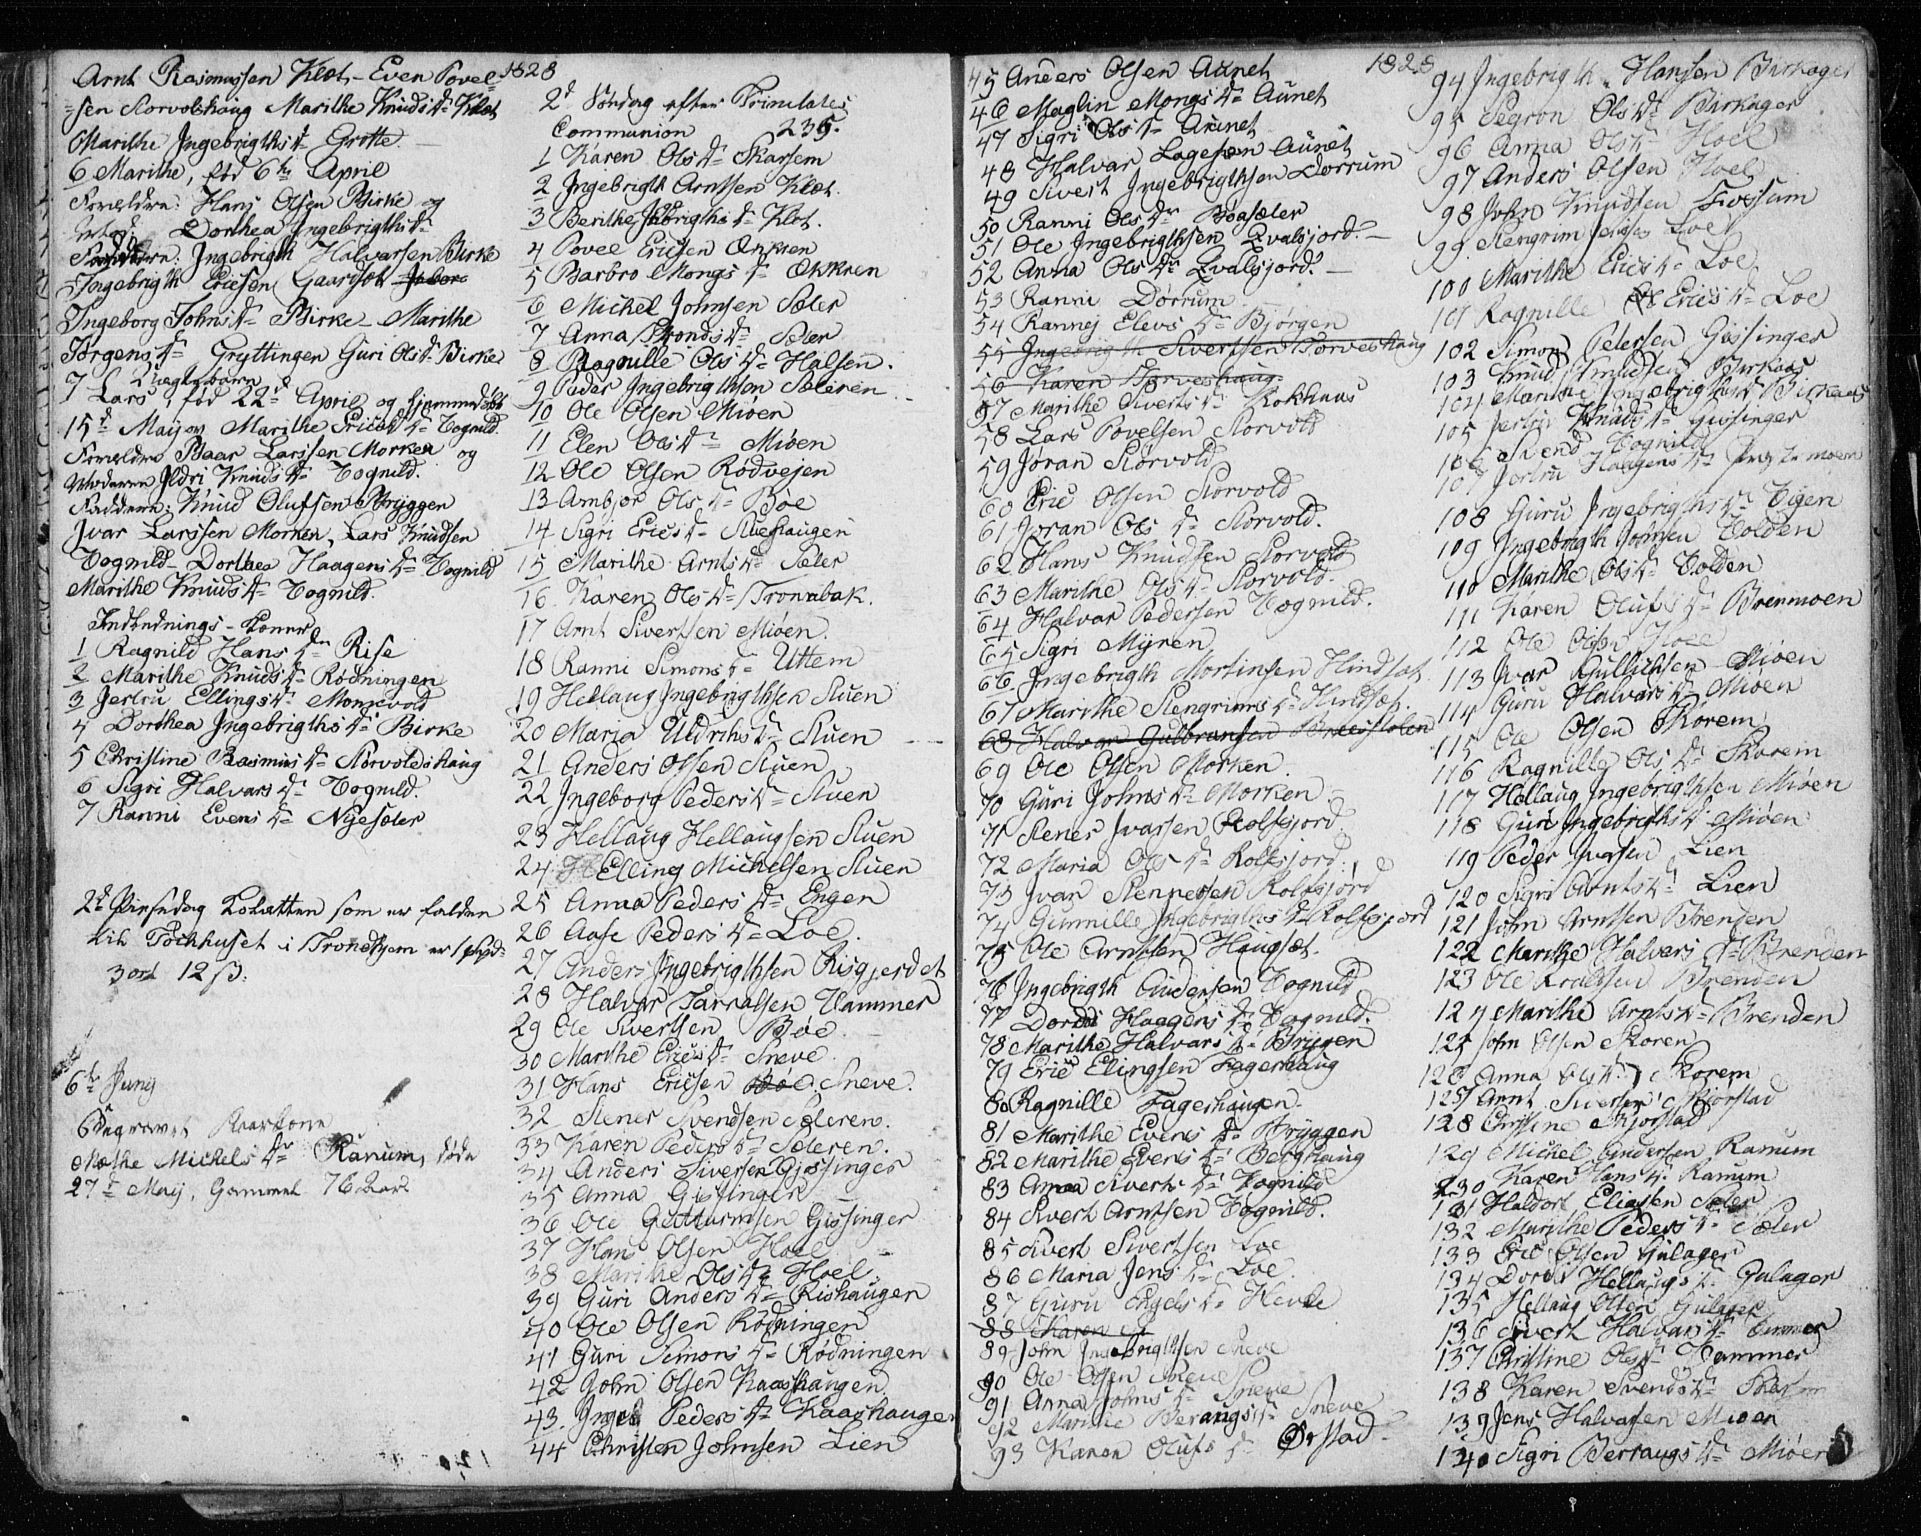 Arnt Rasmussen Kløt - Even Povel=
=sen Storvolshaug Marithe Knudsdr Kløt
Marithe Ingebrigthsdr Grøtte
6 Marithe, fød 6te April
Forældre: Hans Olsen Birke og
Dorthea Ingebrigthsdr
Faddere: Ingebrigth Halvarsen Birke
Ingebrigth Ericsen Gaardsøt
Ingeborg Johnsdr Birke - Marithe
Jørgensdr Gryttingen Guri Olsdr Birke
7 Lars, fød 22de April og hjemmedøbt
15de Maij av Marithe Tognild.
Forældre Baar Larssen Morken og
Moderen Ildri Knudsdr Tognild.
Faddere: Knud Olufsen Bryggen
Ivar Larssen Morken, Lars Knudsen
Tognild - Dorthea Haagensdr Tognild
Marithe Knudsdr Tognild.
Indlednings-Koner
1 Ragnild Hansdr Rise
2 Marithe Knudsdr Rødningen
3 Jertru Ellingsdr Monsevold
4 Dorthea Ingebrigthsdr Birke
5 Christine Rasmusdr Storvoldshaug
6 Sigri Halvarsdr Tognild.
7 Ranni Evensdr Nyesæter
2de Pintsedag som er falden
til Tochhuset i Trondhjem er 1 spd
3 ort 12 s.
6te Junij
Begravet
Mærthe Mickelsdr Ranum, døde
27de Maij, Gammel 76 Aar
1828
2de Søndag efter Trinitatis
Communion 235.
1 Karen Olsdr Skarsem
2 Ingebrigth Arntsen Kløt.
3 Berithe Kløt.
4 Povel Ericsen Økkren
5 Barbro Mongsdr Økkren
6 Michel Johnsen Sæter
7 Anna Trondsdr Sæter
8 Ragnille Olsdr Halsen.
9 Peder Ingebrigthsen Sæteren
10 Ole Olsen Miøen
11 Elen Olsdr Miøen
12 Ole Olsen Rodvesen
13 Ambjor Olsdr Bøe
14 Sigri Ericsdr Stueshaugen
15 Marithe Arntsdr Sæter
16. Karen Olsdr Tronabak.
17 Arnt Sivertsen Miøen.
18 Ranni Simonsdr Uttem
19 Hellaug Ingebrigthsen Stuen
20 Maria Uldrihsdr Stuen
21 Anders Olsen Stuen
22 Ingeborg Pedersdr Stuen
23 Hellaug Hellaugsen Stuen
24 Elling Michelsen Stuen
25 Anna Pedersdr Engen
26 Aase Pedersdr Loe.
27 Anders Ingebrigthsen Risgjerdet
28 Halvar Tarralsen Hammer
29 Ole Sivertsen Bøe
30 Marithe Ericsdr Sneve
31 Hans Ericsen Bøe Sneve.
32 Stener Svendsen Sæteren.
33 Karen Pedersdr Sæteren.
34 Anders Sivertsen Gissinger
35 Anna Gissinger
36 Ole Guttormsen Gissinger
37 Hans Olsen Hoel
38 Marithe Olsdr Hoel
39 Guri Andersdr Rishaugen
40 Ole Olsen Rødningen
41 Guri Simonsdr Rødningen
42 John Olsen Kaashaugen
43. Ingeb Pedersdr Kaashaugen
44 Christen Johnsen Lien
1828
45 Anders Olsen Aunet
46 Maglin Mongsdr Aunet
47 Sigri Olsdr Aunet
48 Halvar Lagesen Aunet
49 Sivert Ingebrigthsen Dørrum
50 Ranni Olsdr Boasæter
51 Ole Ingebrigthsen Qvalsjord.
52 Anna Olsdr Qvalsjord.
53 Ranni Dørrum
54 Rannej Elevsdr Bjørgen
55 Ingebrigth Sivertsen Torveshaug
56 Karen Torveshaug
57 Marithe Sivertsdr Kokhaus
58 Lars Povelsen Storvold
59 Joran Storvold
60 Eric Olsen Storvold
61 Joran Olsdr Storvold.
62 Hans Knudsen Storvold
63 Marithe Olsdr Storvold.
64 Halvar Pedersen Tognild.
65 Sigri Myren
66 Ingebrigth Mortinsen Hindsæt
67 Marithe Stengrimsdr Hindsæt.
68 Halvar Gulbransen
69 Ole Olsen Morken
70 Guri Johnsdr Morken
71 Stener Ivarsen Rolfsjord
72 Maria Olsdr Rolfsjord.
73 Ivar Stennersen Rolfsjord
74 Gunnille Ingebrigthsdr Rolfsjord
75 Ole Arntsen Haugsæt.
76 Ingebrigth Andersen Tognild
77 Dordi Haagensdr Tognild.
78 Marithe Halvarsdr Bryggen
79 Eric Elingsen Fagerhaug
80 Ragnille Fagerhaugen
81 Marithe Evensdr Bryggen
82 Marithe Evensdr Berghaug
83 Anna Sivertsdr Tognild
84 Sivert Arntsen Tognild.
85 Sivert Sivertsen Loe
86 Maria Jensdr Loe.
87 Guru Engelsdr Hevle
88 Karen
89 John Ingebrigthsen Sneve
90 Ole Olsen Sneve
91 Anna Johnsdr Sneve
92 Marithe Berangsdr Sneve
93 Karen Olufsdr Ørstad
94 Ingebrigth Hansen Birkager
95 Segron Olsdr Birkager
96 Anna Olsdr Hoel
97 Anders Olsen Hoel
98 John Knudsen Fossum
99 Stengrim Loe
100 Marithe Ericsdr Loe
101 Ragnille Ericsdr Loe
102 Simon Petersen Gissinger
103 Knud Knudsen Birkaas
104 Marithe Ingebrigthsdr Birkaas
105 Jertru Knudsdr Gissinger
106 Svend Tognild
107 Jertru Haagensdr
108 Guru Ingebrigthsdr Vigen
109 Ingebrigth Johnsen Volden
110 Marithe Olsdr Volden
111 Karen Olufsdr Brenmoen
112 Ole Olsen Hoel
113 Ivar Gullichsen Miøen
114 Guru Halvarsdr Miøen
115 Ole Olsen Skorem
116 Ragnille Olsdr Skorem
117 Hellaug Ingebrigthsen Miøen
118 Guri Ingebrigthsdr Miøen
119 Peder Ivarsen Lien
120 Sigri Arntsdr Lien
121 John Arntsen Brenden
122 Marithe Halversdr Brenden
123 Ole Brenden
124 Marithe Arntsdr Brenden
125 John Olsen Skoren
126 Anna Olsdr Skorem
127 Arnt Sivertsen Skjorstad
128 Christine Skjorstad
129 Michel Andersen Ranum
130 Karen Hansdr Ranum
131 Haldort Eliassen Sæter
132 Marithe Pedersdr Sæter
133 Eric Olsen Gulager
134 Dordi Hellaugsdr Gulager
135 Hellaug Olsen Gulager
136 Sivert Halvarsdr Hammer
137 Christine Olsdr Hammer
138 Karen Svendsdr
139 Jens Halvarsen Miøen
140 Sigri Berraugsdr Miøen